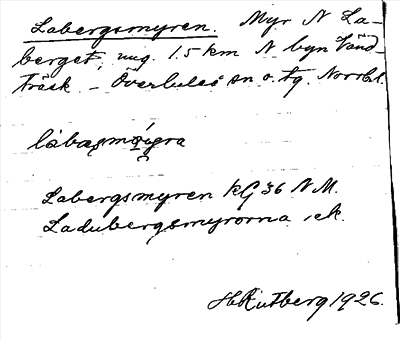 Labergsmyren. Myr N La-
berget, ung. 1.5 km N byn Vänd-
träsk – Överluleå sn o. tg. Norrbt.
Labergsmyren kG 36 N.M.
Ladubergsmyrorna i ek.
H Rutberg 1926.